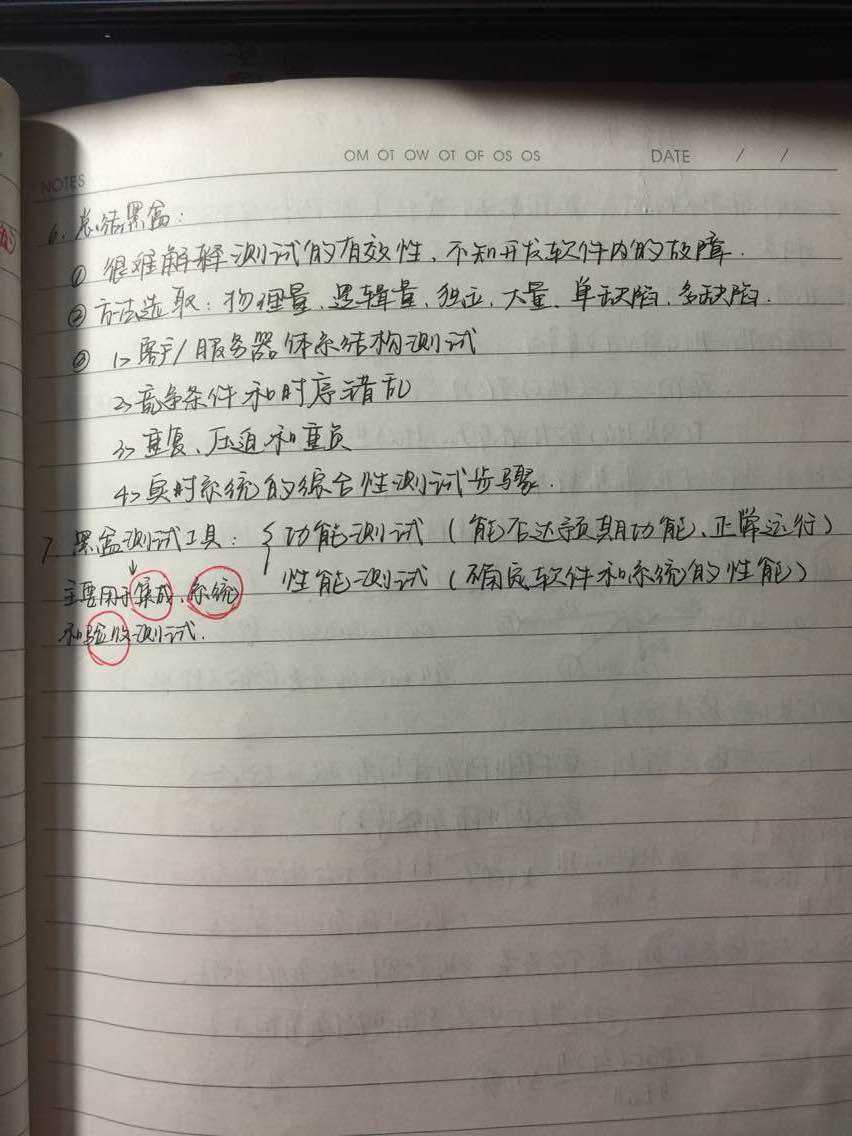 NOTES
OM OT OW OT OF OS OS DATE / /
6. 总结黑盒:
① 很难解释测试的有效性、不知开发软件内的故障.
② 方法选取: 物理量、逻辑量、独立、大量、单缺陷、多缺陷.
③ 1> 客户/服务器体系结构测试
2> 竞争条件和时序错乱
3> 重复、压迫和重负
4> 实时系统的综合性测试步骤.
7. 黑盒测试工具: { 功能测试 (能否达预期功能、正常运行)
主要用于集成、系统 性能测试 (确定软件和系统的性能)
和验收测试.